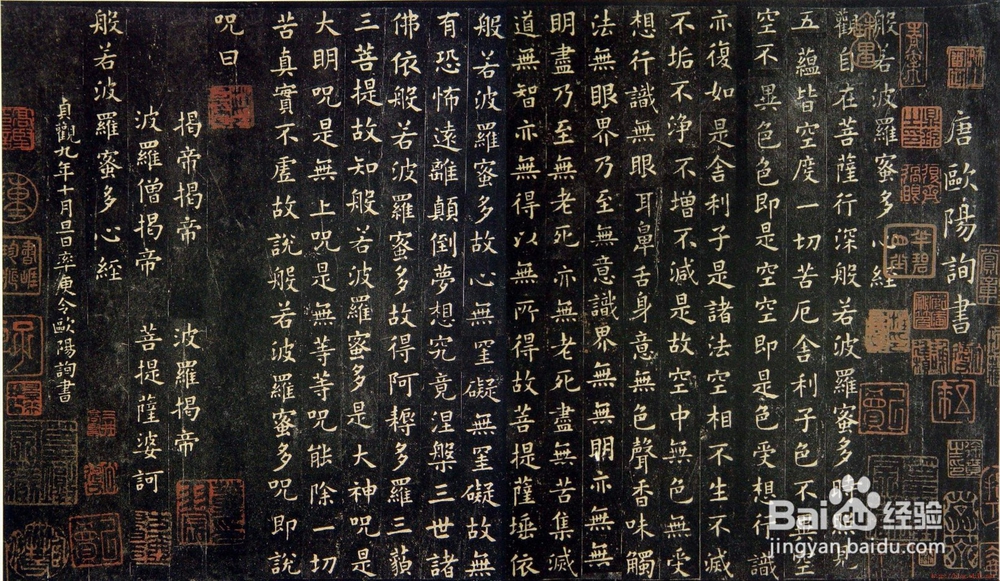 唐歐陽詢書
般若波羅蜜多心経
觀自在菩薩行深般若波羅蜜多時照見
五蘊皆空度一切苦厄舍利子色不異空
空不異色色即是空空即是色受想行識
亦復如是舍利子是諸法空相不生不滅
不垢不淨不增不減是故空中無色無受
想行識無眼耳鼻舌身意無色聲香味觸
法無眼界乃至無意識界無無明亦無無
明盡乃至無老死亦無老死盡無苦集滅
道無智亦無得以無所得故菩提薩埵依
般若波羅蜜多故心無罣礙無罣礙故無
有恐怖遠離顛倒夢想究竟涅槃三世諸
佛依般若波羅蜜多故得阿耨多羅三藐
三菩提故知般若波羅蜜多是大神呪是
大明呪是無上呪是無等等呪能除一切
苦真實不虛故說般若波羅蜜多呪即說
呪曰
揭帝揭帝 波羅揭帝
波羅僧揭帝 菩提薩婆訶
般若波羅蜜多心経
貞觀九年十月旦日率更令歐陽詢書
Baidu 经验
jingyan.baidu.com